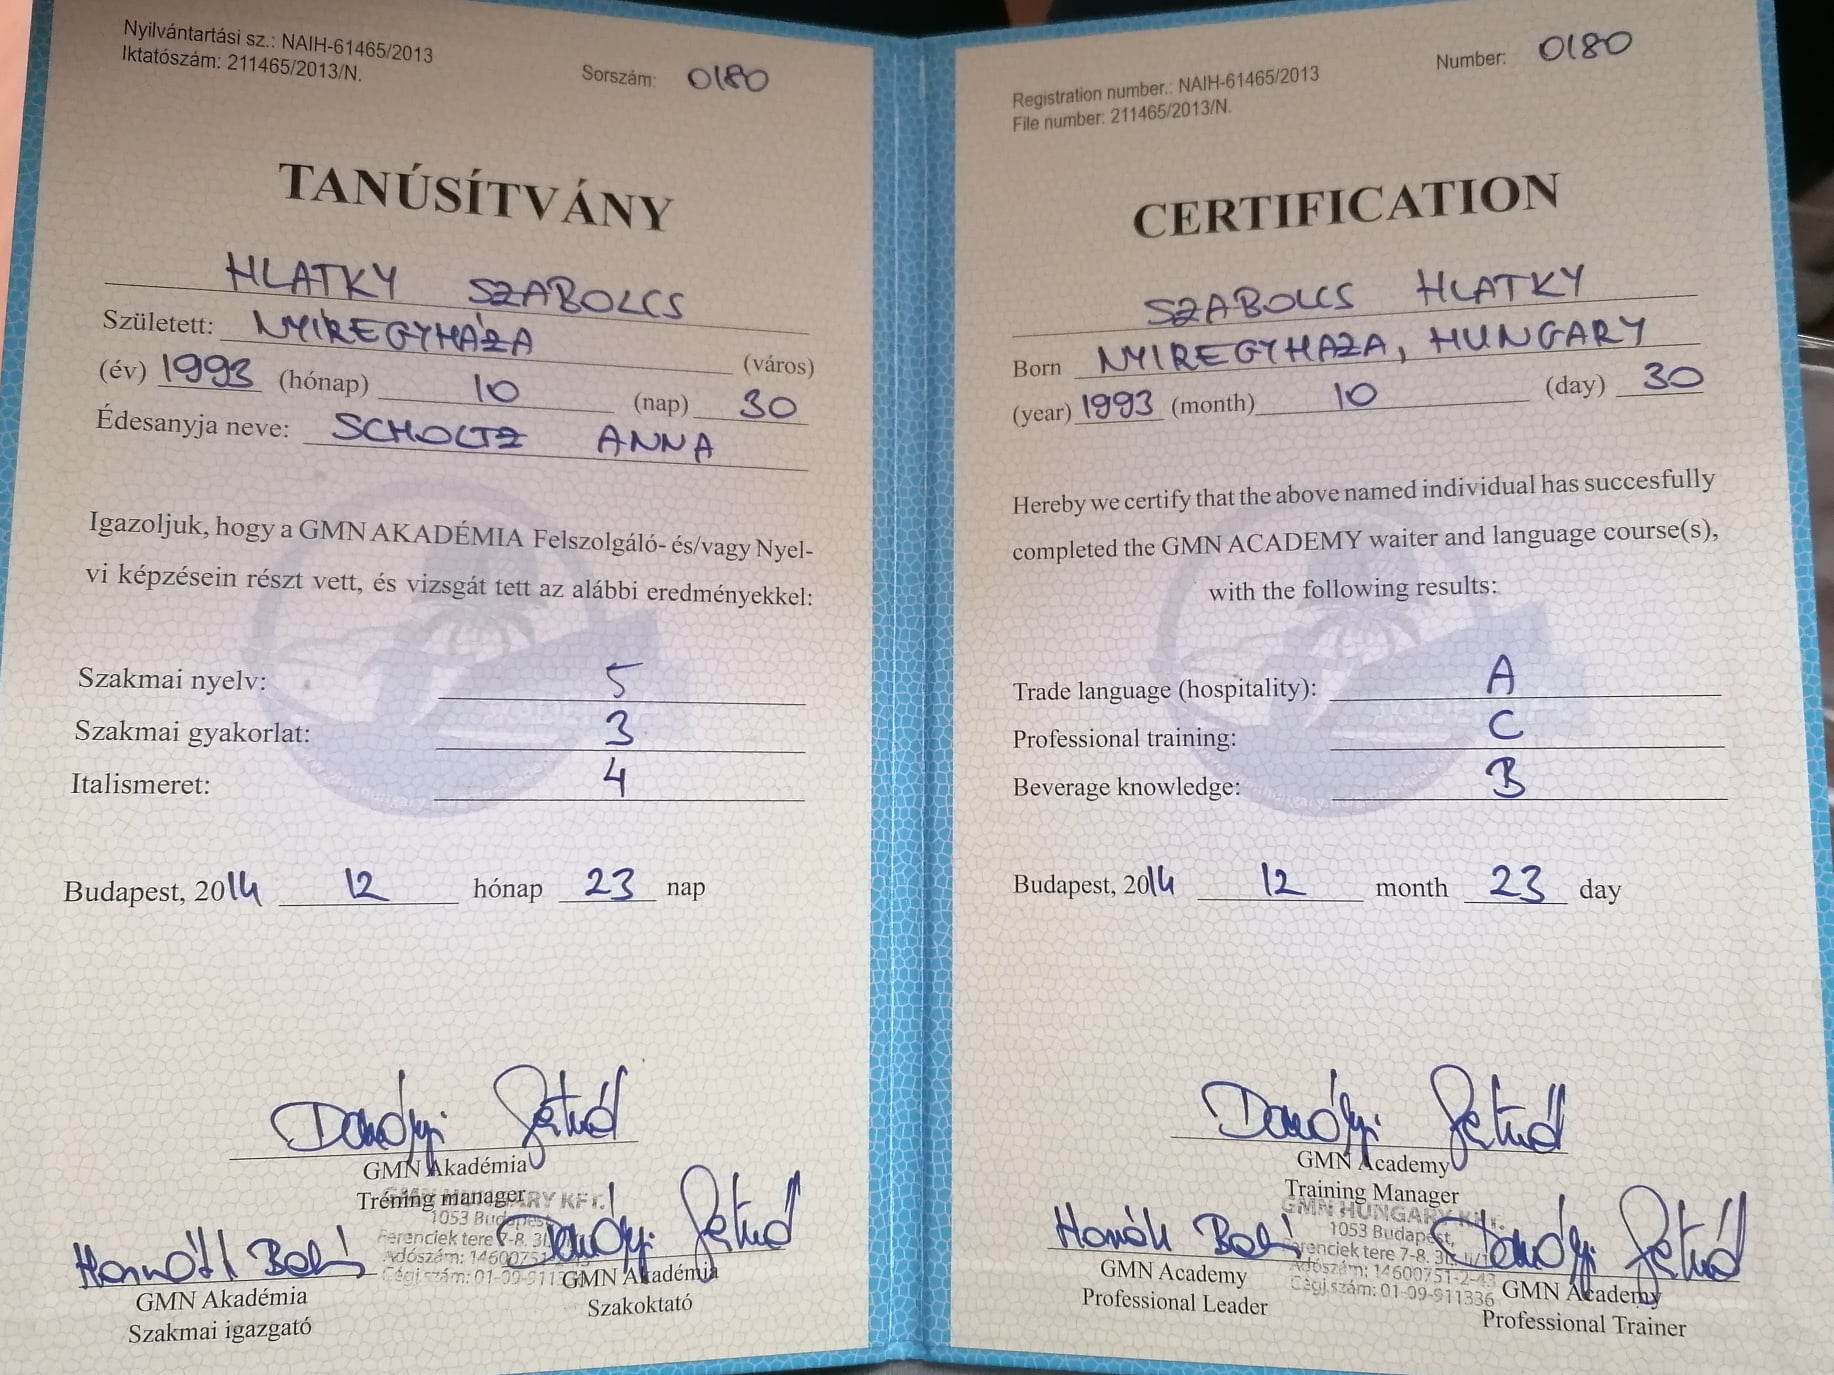 Nyilvántartási sz.: NAIH-61465/2013
Iktatószám: 211465/2013/N.
Sorszám: 0180
TANÚSÍTVÁNY
HLATKY SZABOLCS
Született: NYÍREGYHÁZA (város)
(év) 1993 (hónap) 10 (nap) 30
Édesanyja neve: SCHOLTZ ANNA
Igazoljuk, hogy a GMN AKADÉMIA Felszolgáló- és/vagy Nyel-
vi képzésein részt vett, és vizsgát tett az alábbi eredményekkel:
Szakmai nyelv: 5
Szakmai gyakorlat: 3
Italismeret: 4
Budapest, 2014 12 hónap 23 nap
GMN Akadémia
Tréning manager
GMN HUNGARY KFT.
1053 Budapest,
Ferenciek tere 7-8. 3
Adószám: 14600751
Cégjszám: 01-09-911
GMN Akadémia
Szakmai igazgató
GMN Akadémia
Szakoktató
Registration number.: NAIH-61465/2013
File number: 211465/2013/N.
Number: 0180
CERTIFICATION
SZABOLCS HLATKY
Born NYIREGYHAZA, HUNGARY
(year) 1993 (month) 10 (day) 30
Hereby we certify that the above named individual has succesfully
completed the GMN ACADEMY waiter and language course(s),
with the following results:
Trade language (hospitality): A
Professional training: C
Beverage knowledge: B
Budapest, 2014 12 month 23 day
GMN Academy
Training Manager
GMN HUNGARY Kft.
1053 Budapest,
Ferenciek tere 7-8. 3
Adószám: 14600751-2-43
Cégjszám: 01-09-911336
GMN Academy
Professional Leader
GMN Academy
Professional Trainer